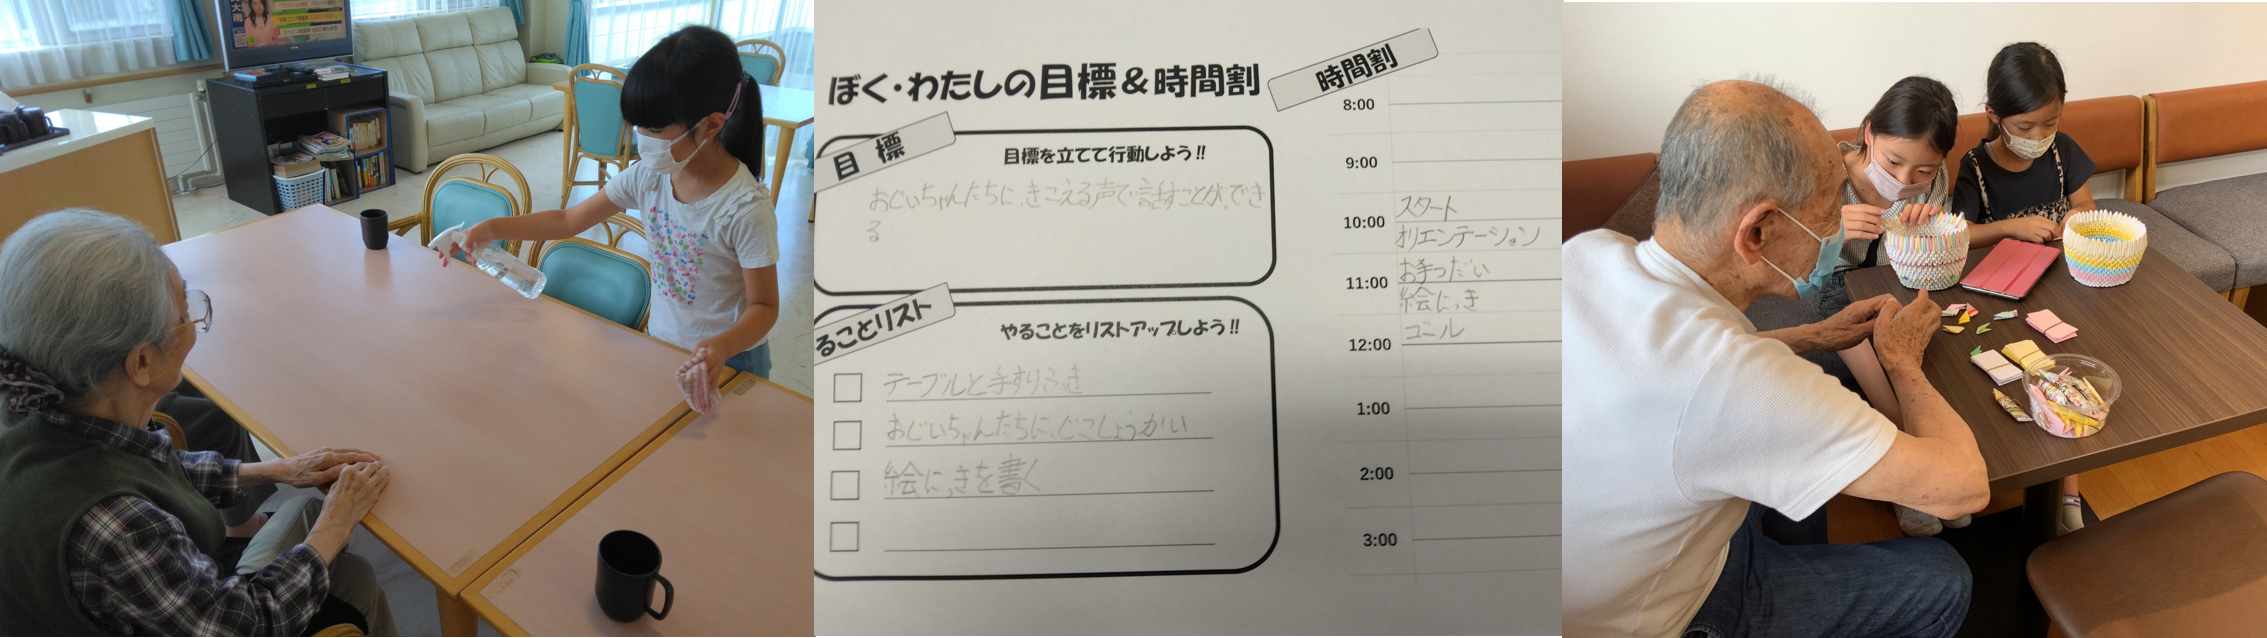 大雨
ぼく・わたしの目標＆時間割
目標
目標を立てて行動しよう!!
おじいちゃんたちに、きこえる声で話すことが、でき
る
ることリスト
やることをリストアップしよう!!
テーブルと手すりふき
おじいちゃんたちに、じこしょうかい
絵にっきを書く
時間割
8:00
9:00
スタート
10:00
オリエンテーション
お手つだい
11:00
絵にっき
ゴール
12:00
1:00
2:00
3:00